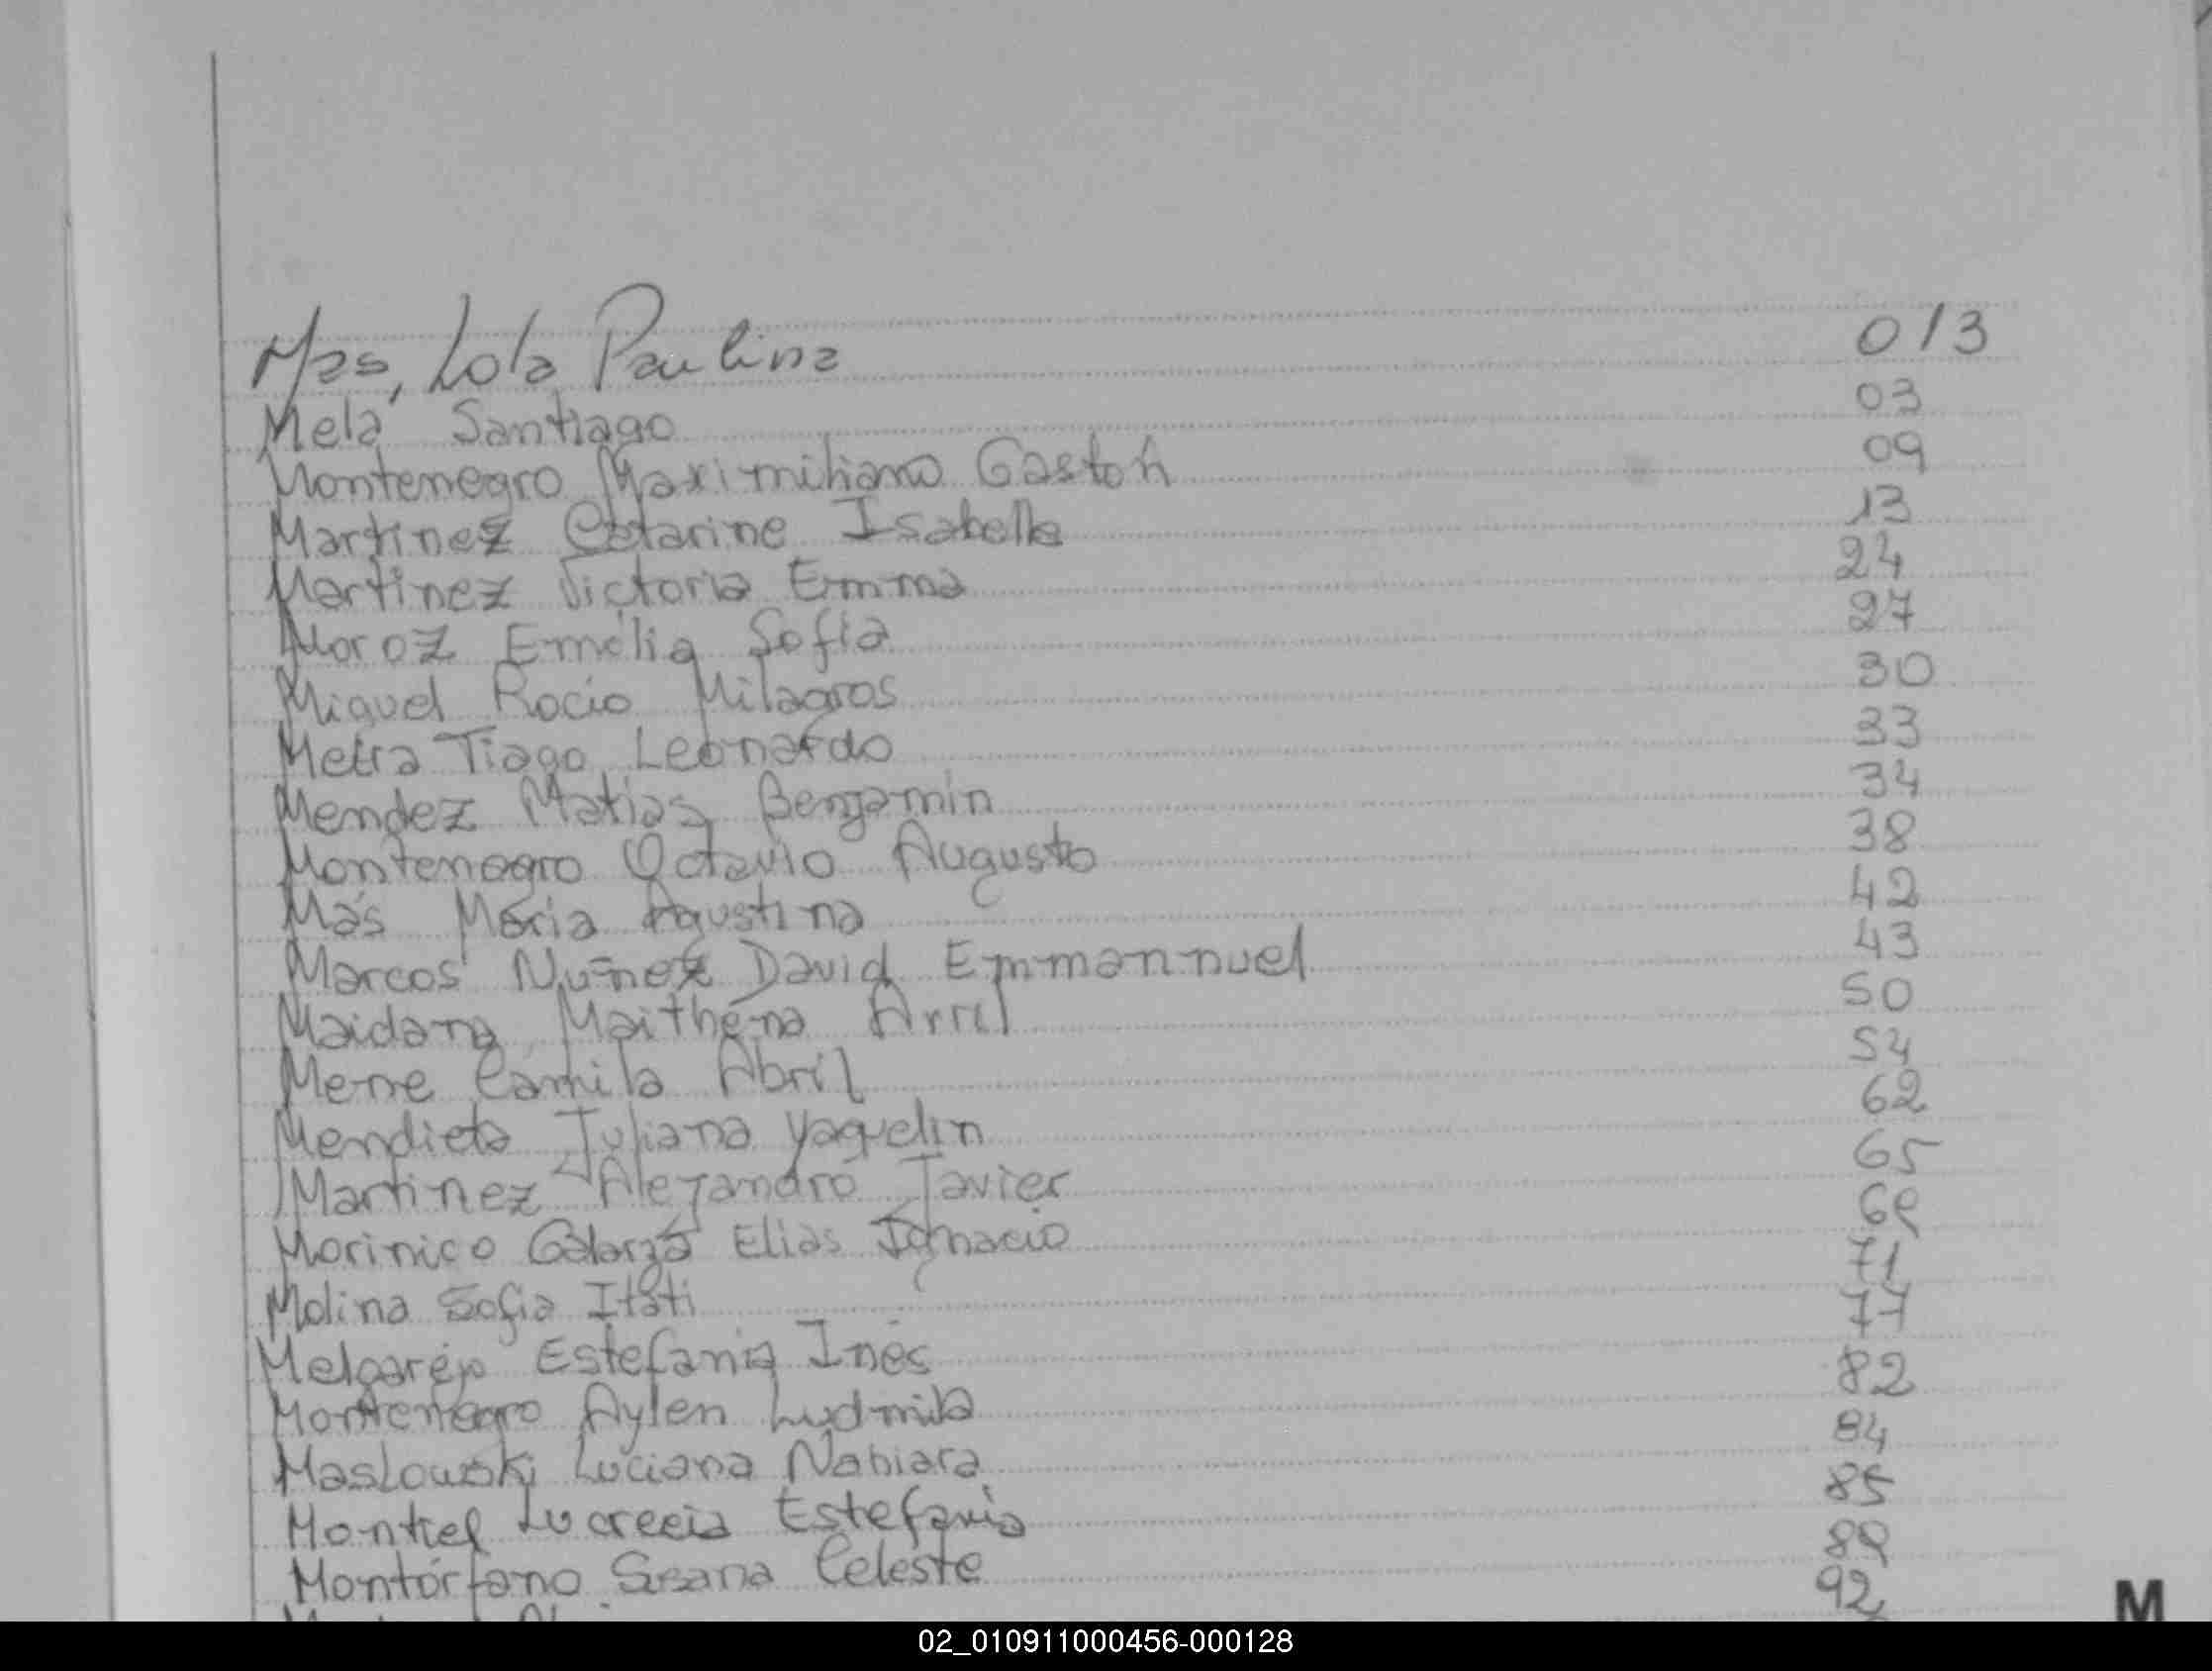 Mas, Lola Paulina 013
Mela Santiago 03
Montenegro Maximiliano Gastón 09
Martinez Catarine Isabella 13
Martinez Victoria Emma 24
Moroz Emilia Sofia 27
Miguel Rocio Milagros 30
Meira Tiago Leonardo 33
Mendez Matias Benjamin 34
Montenegro Octavio Augusto 38
Más Maria Agustina 42
Marcos Nuñez David Emmannuel 43
Maidana Maithena 50
Mene Camila Abril 54
Mendieta Juliana Yaquelin 62
Martinez Alejandro Javier 65
Morinico Galarza Elias Ignacio 69
Molina Sofia Itati 71
Melgarejo Estefania Inés 77
Montenegro Aylen Ludmila 82
Maslowski Luciana Nahiara 84
Montiel Lucrecia Estefania 85
Montórfano Celeste 89
92
M
02_010911000456-000128